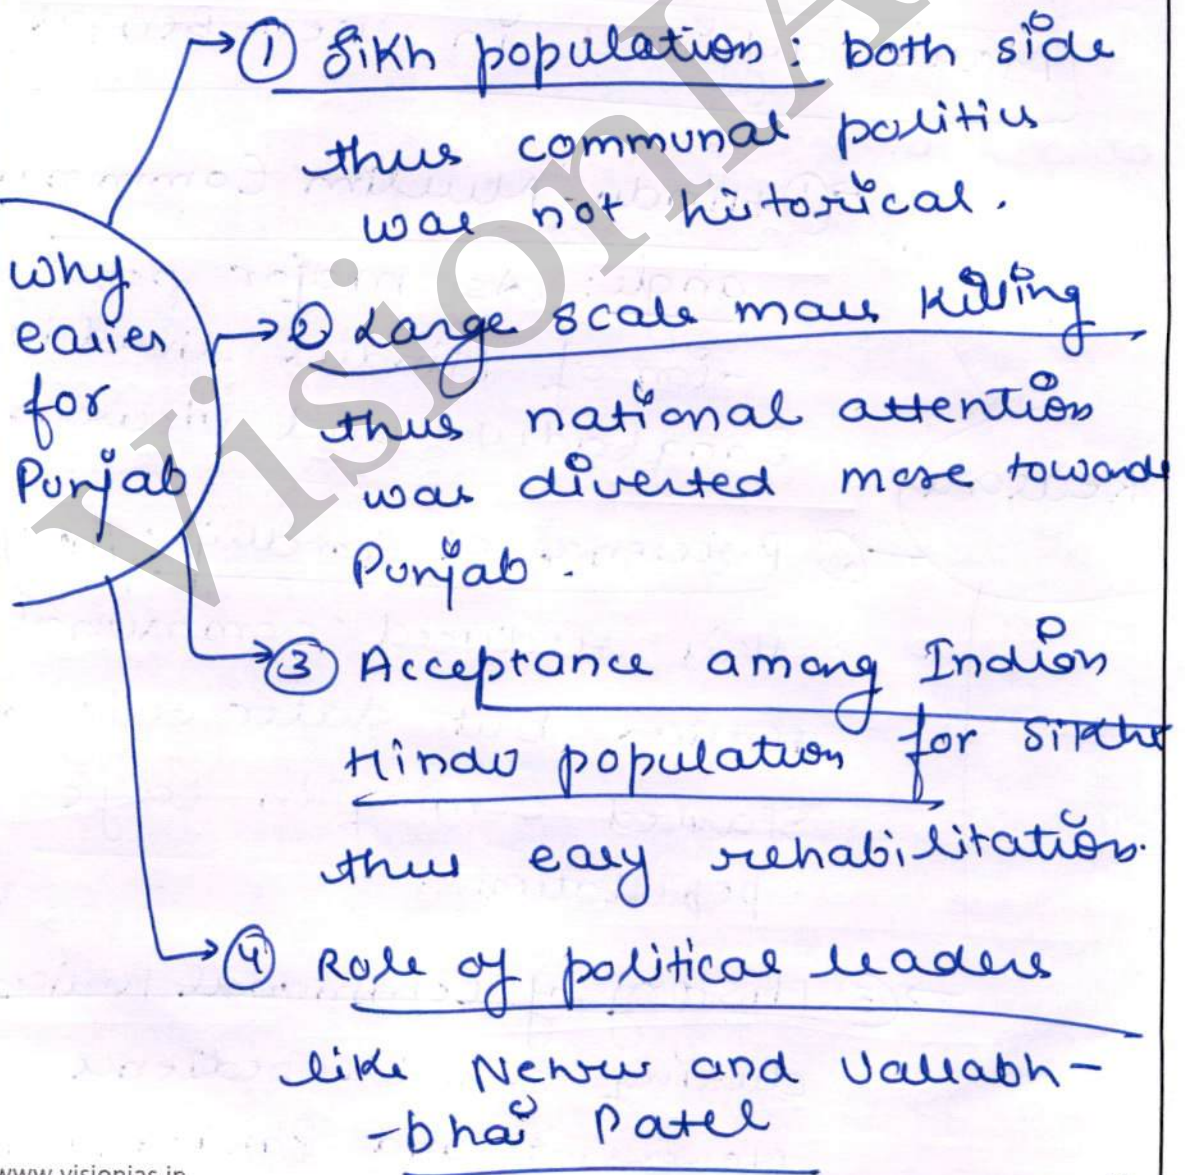 ① Sikh population: both side
thus communal politics
was not historical.
why
easier
for
Punjab
② Large scale mass Killing
thus national attention
was diverted more towards
Punjab.
③ Acceptance among Indian
Hindu population for Sikhs
thus easy rehabilitation.
④ Role of political leaders
like Nehru and Vallabh-
-bhai Patel
www.visionias.in
VisionIA